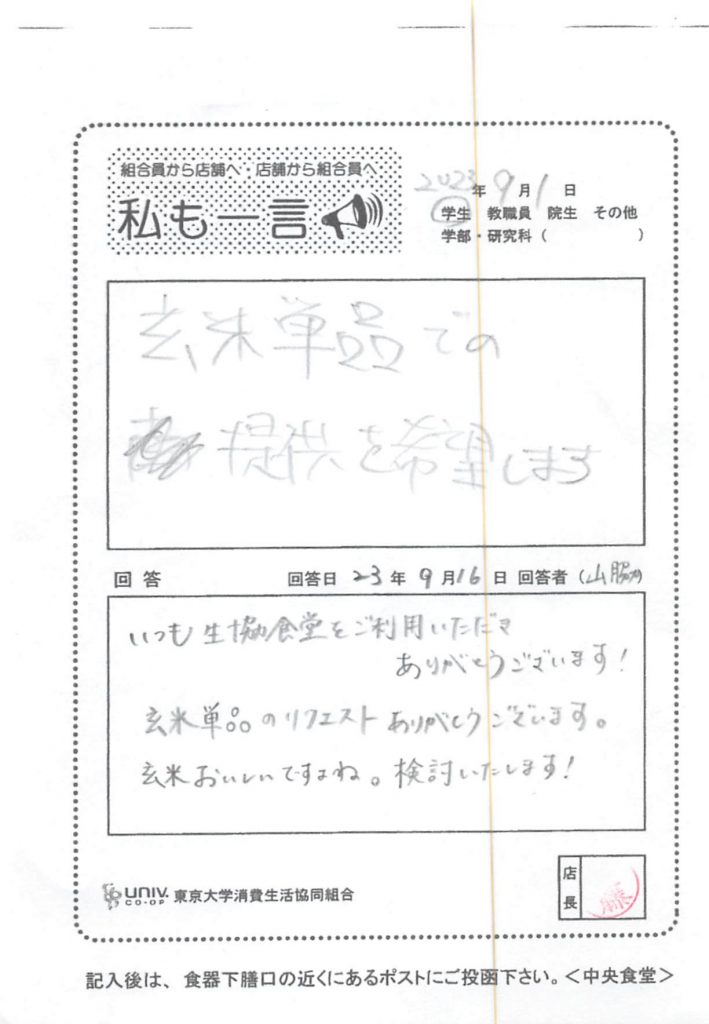 組合員から店舗へ・店舗から組合員へ
私も一言
2023年9月1日
学生 教職員 院生 その他
学部・研究科( )
玄米単品での
提供を希望します
回答 回答日 23年9月16日 回答者(山脇)
いつも生協食堂をご利用いただき
ありがとうございます!
玄米単品のリクエストありがとうございます。
玄米おいしいですよね。検討いたします!
UNIV. CO-OP 東京大学消費生活協同組合
店長
記入後は、食器下膳口の近くにあるポストにご投函下さい。<中央食堂>